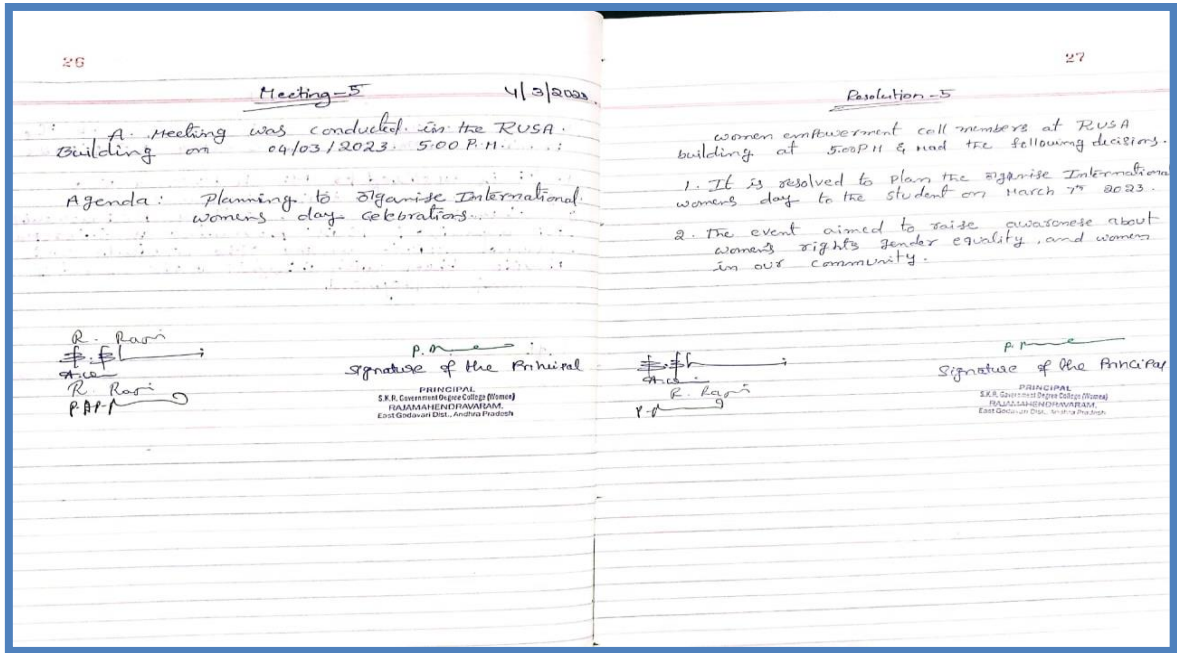 26
Meeting-5
4/3/2023
A. Meeting was conducted in the RUSA.
Building on 04/03/2023. 5:00 P.M.
Agenda: Planning to organise International
womens day celebrations.
R. Rani
R. Rani
Signature of the Prinipal
PRINCIPAL
S.K.R. Government Degree College (Women)
RAJAMAHENDRAVARAM,
East Godavari Dist., Andhra Pradesh
27
Resolution-5
women empowerment cell members at RUSA
building at 5:00PM & had the following decisions.
1. It is resolved to plan the organise International
womens day to the student on March 7th 2023.
2. The event aimed to raise awarenese about
women's rights gender equality, and women
in our community.
R. Rani
Signature of the Principal
PRINCIPAL
S.K.R. Government Degree College (Women)
RAJAMAHENDRAVARAM,
East Godavari Dist., Andhra Pradesh